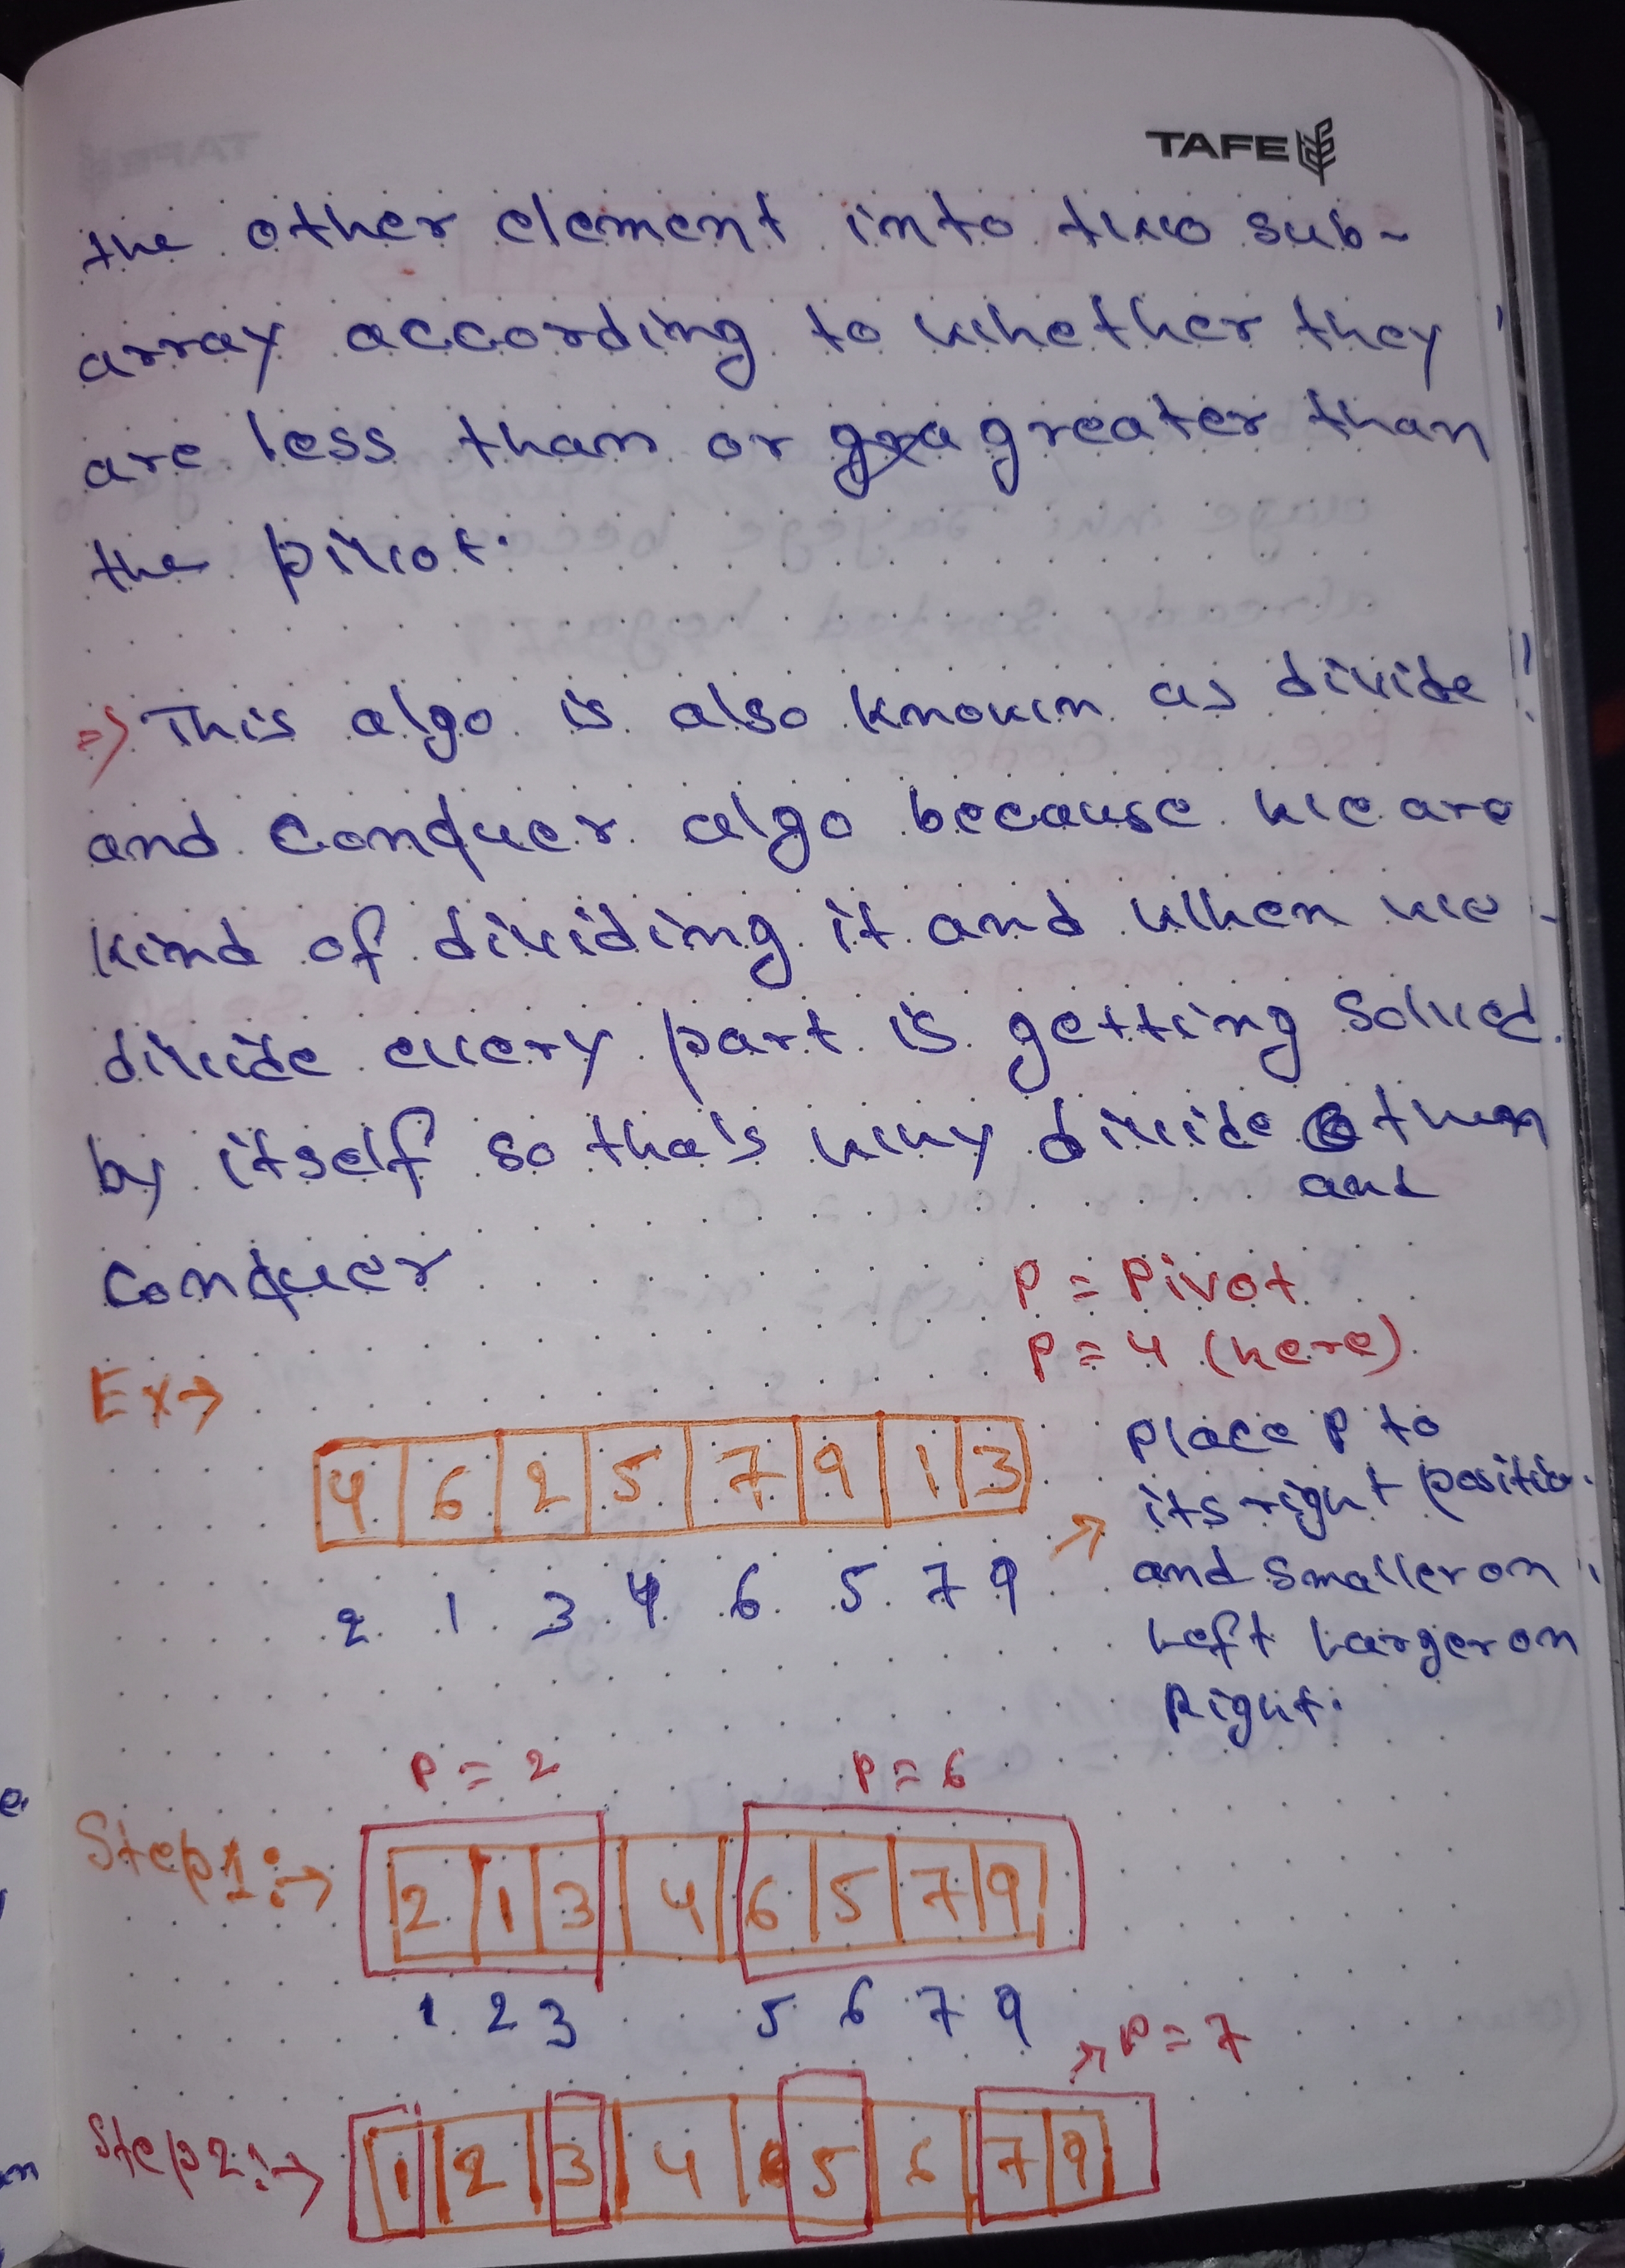 TAFE
the other element into two sub-
array according to whether they
are less than or greater than
the pivot.
=> This algo is also known as divide
and Conquer algo because we are
kind of dividing it and when we
divide every part is getting solved
by itself so tha's why divide then
and
Conquer
P = Pivot
P = 4 (here)
Ex→
4 6 2 5 7 9 1 3
→ Place P to
its right positio
and smaller on
Left Larger on
Right.
2 1 3 4 6 5 7 9
P = 2 P = 6
Step 1:→ 2 1 3 4 6 5 7 9
1 2 3 5 6 7 9
→ P = 7
Step 2:→ 1 2 3 4 5 6 7 9